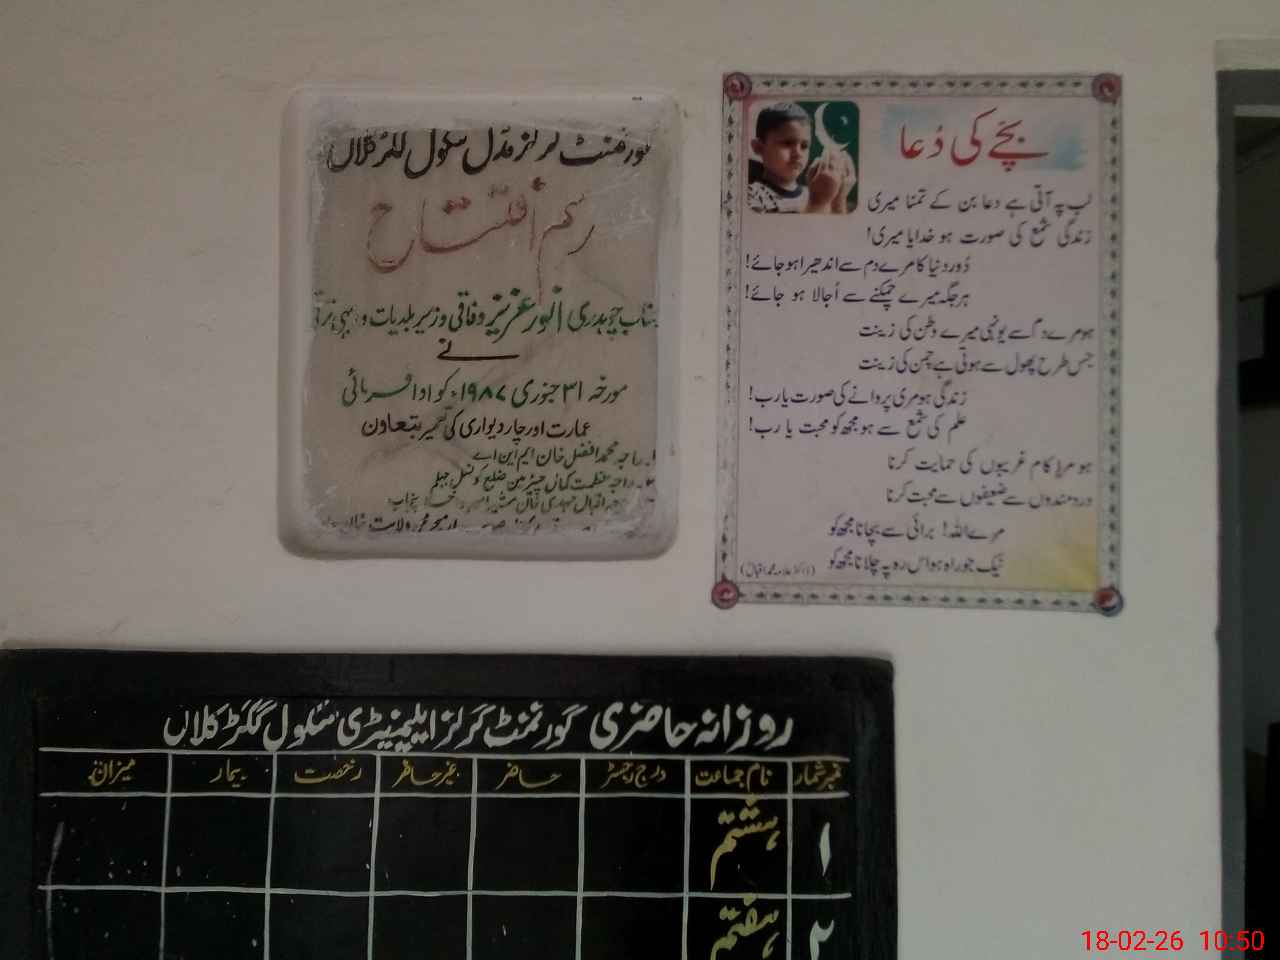 گورنمنٹ گرلز مڈل سکول گگڑ کلاں
رسم افتتاح
جناب چوہدری انور عزیز وفاقی وزیر بلدیات و دیہی ترقی
نے
مورخہ ۳۱ جنوری ۱۹۸۷ء کو ادا فرمائی
عمارت اور چار دیواری کی تعمیر بتعاون
راجہ محمد افضل خان ایم این اے
راجہ عظمت کمال چیئرمین ضلع کونسل جہلم
راجہ اقبال مہدی خان مشیر
محمد ولایت خان
بچے کی دُعا
لب پہ آتی ہے دعا بن کے تمنا میری
زندگی شمع کی صورت ہو خدایا میری!
دُور دنیا کا مرے دم سے اندھیرا ہو جائے!
ہر جگہ میرے چمکنے سے اُجالا ہو جائے!
ہو مرے دم سے یونہی میرے وطن کی زینت
جس طرح پھول سے ہوتی ہے چمن کی زینت
زندگی ہو مری پروانے کی صورت یا رب!
علم کی شمع سے ہو مجھ کو محبت یا رب!
ہو مرا کام غریبوں کی حمایت کرنا
دردمندوں سے ضعیفوں سے محبت کرنا
مرے اللہ! برائی سے بچانا مجھ کو
نیک جو راہ ہو اس رہ پہ چلانا مجھ کو
(ڈاکٹر علامہ محمد اقبالؒ)
روزانہ حاضری گورنمنٹ گرلز ایلیمنٹری سکول گگڑ کلاں
نمبر شمار نام جماعت درج رجسٹر حاضر غیر حاضر رخصت بیمار میزان
۱ ہشتم
۲ ہفتم
18-02-26 10:50